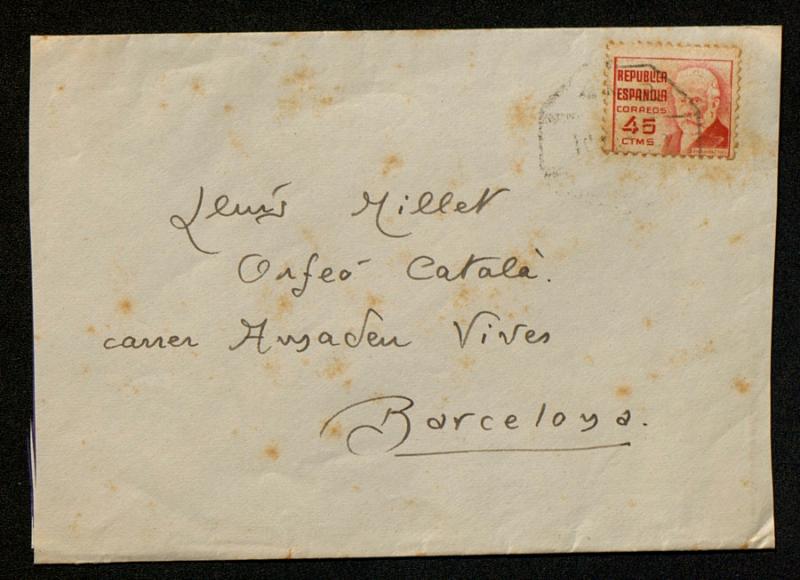 REPUBLICA
ESPAÑOLA
CORREOS
45
CTMS
Lluís Millet
Orfeó Català.
carrer Amadeu Vives
Barcelona.